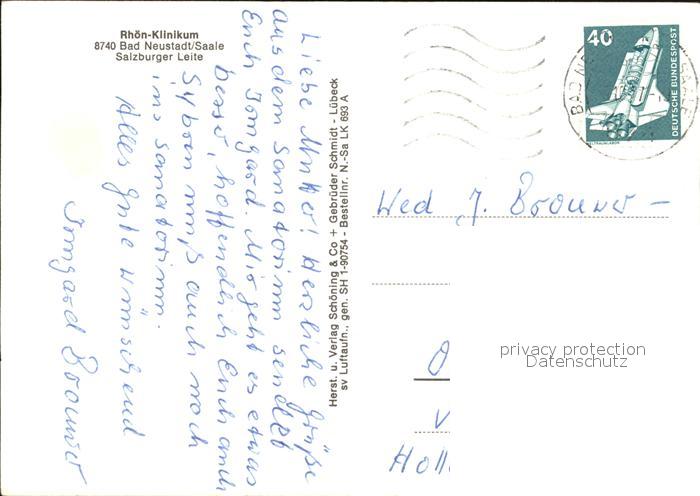 Rhön-Klinikum
8740 Bad Neustadt/Saale
Salzburger Leite
Liebe Mutter! Herzliche Grüße
aus dem Sanatorium sendet
Euch Irmgard. Mir geht es etwas
besser, hoffendlich Euch auch
muß auch noch
ins Sanatorium.
Alles Gute wünschend
Irmgard Brouwer
Herst. u. Verlag Schöning & Co + Gebrüder Schmidt - Lübeck
sv Luftaufn., gen. SH 1-90754 - Bestellnr. N.-Sa LK 693 A
40
DEUTSCHE BUNDESPOST
WELTRAUMLABOR
BAD
Wed J. Brouwer -
O
privacy protection
Datenschutz
v
Holl